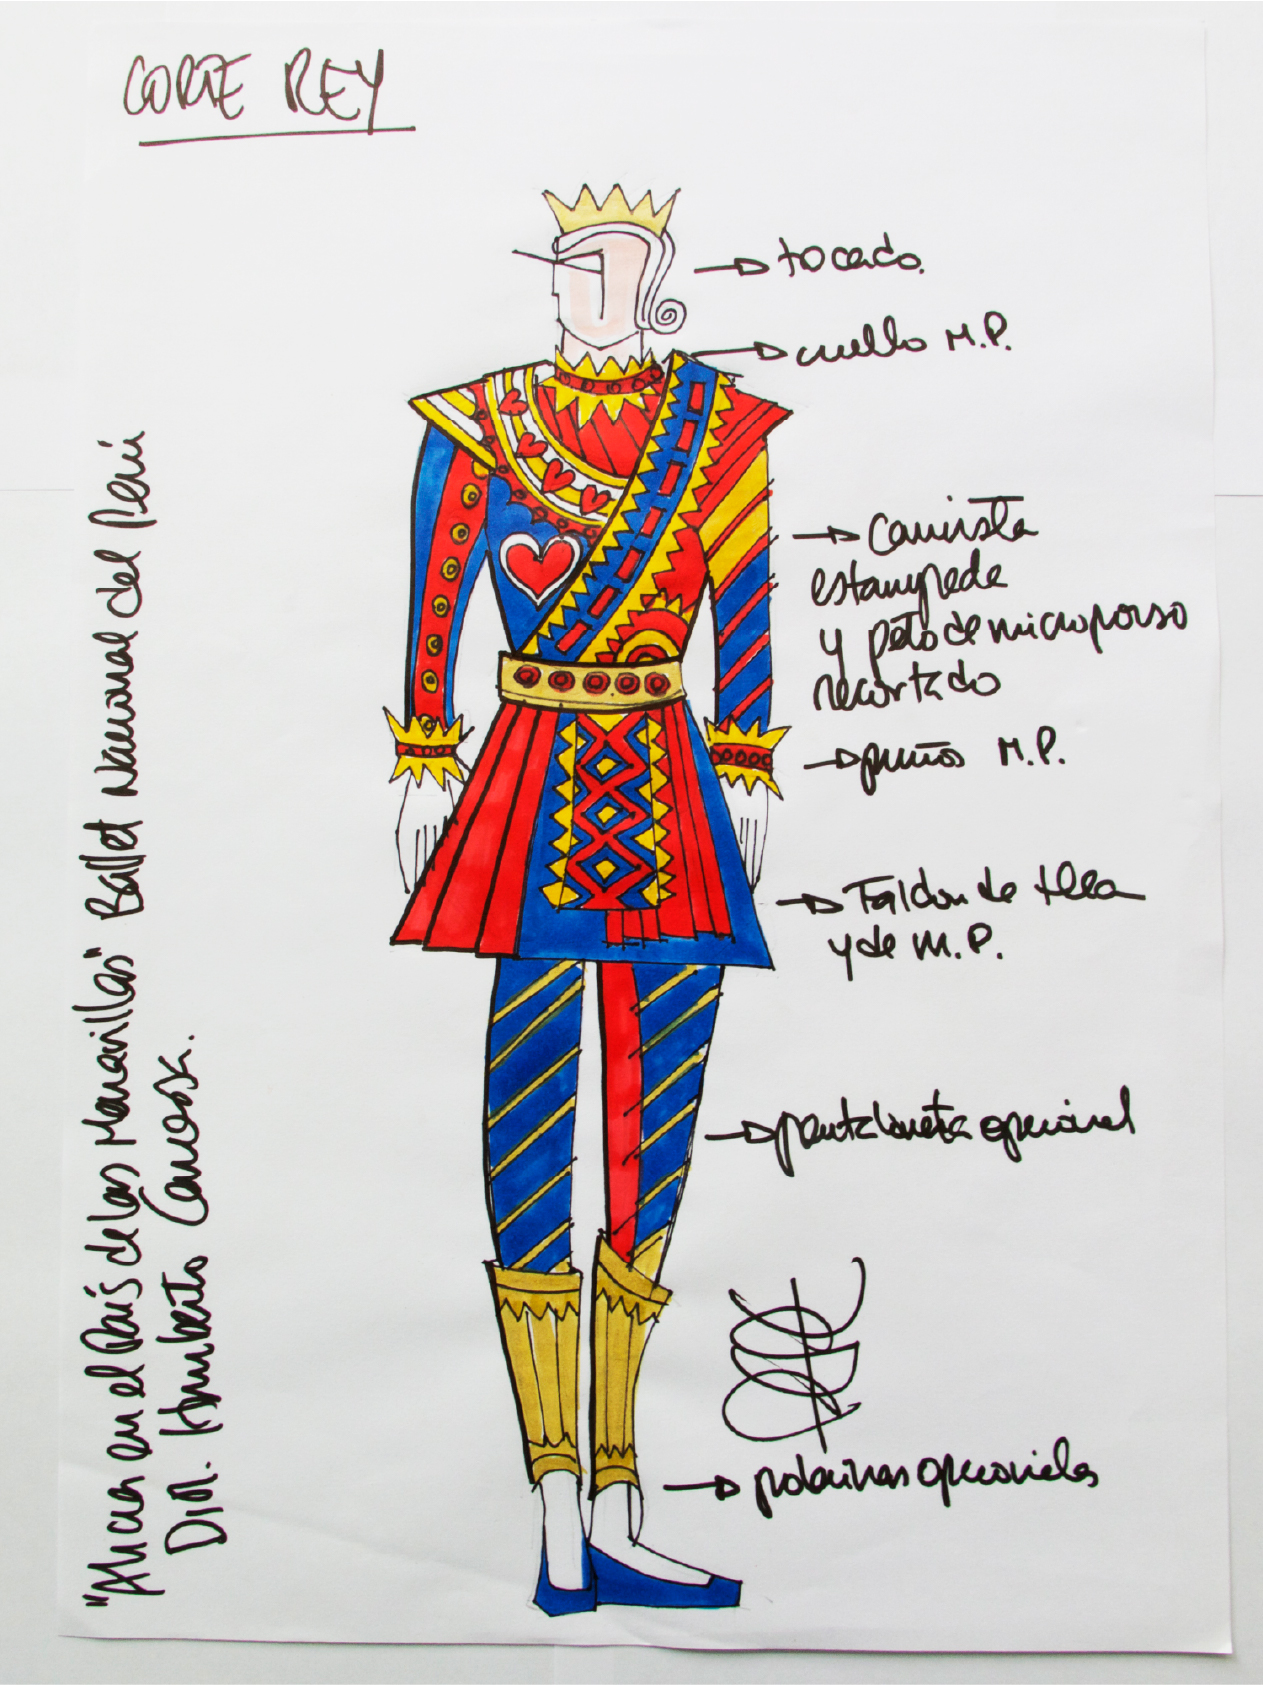 CORTE REY
tocado.
cuello M.P.
Camiseta
estampada
y peto de microporoso
recortado
puños M.P.
Faldon de tela
y de M.P.
pantaloneta opcional
polainas opcionales
"Alicia en el País de las Maravillas" Ballet Nacional del Perú
Dir. Humberto Canessa.